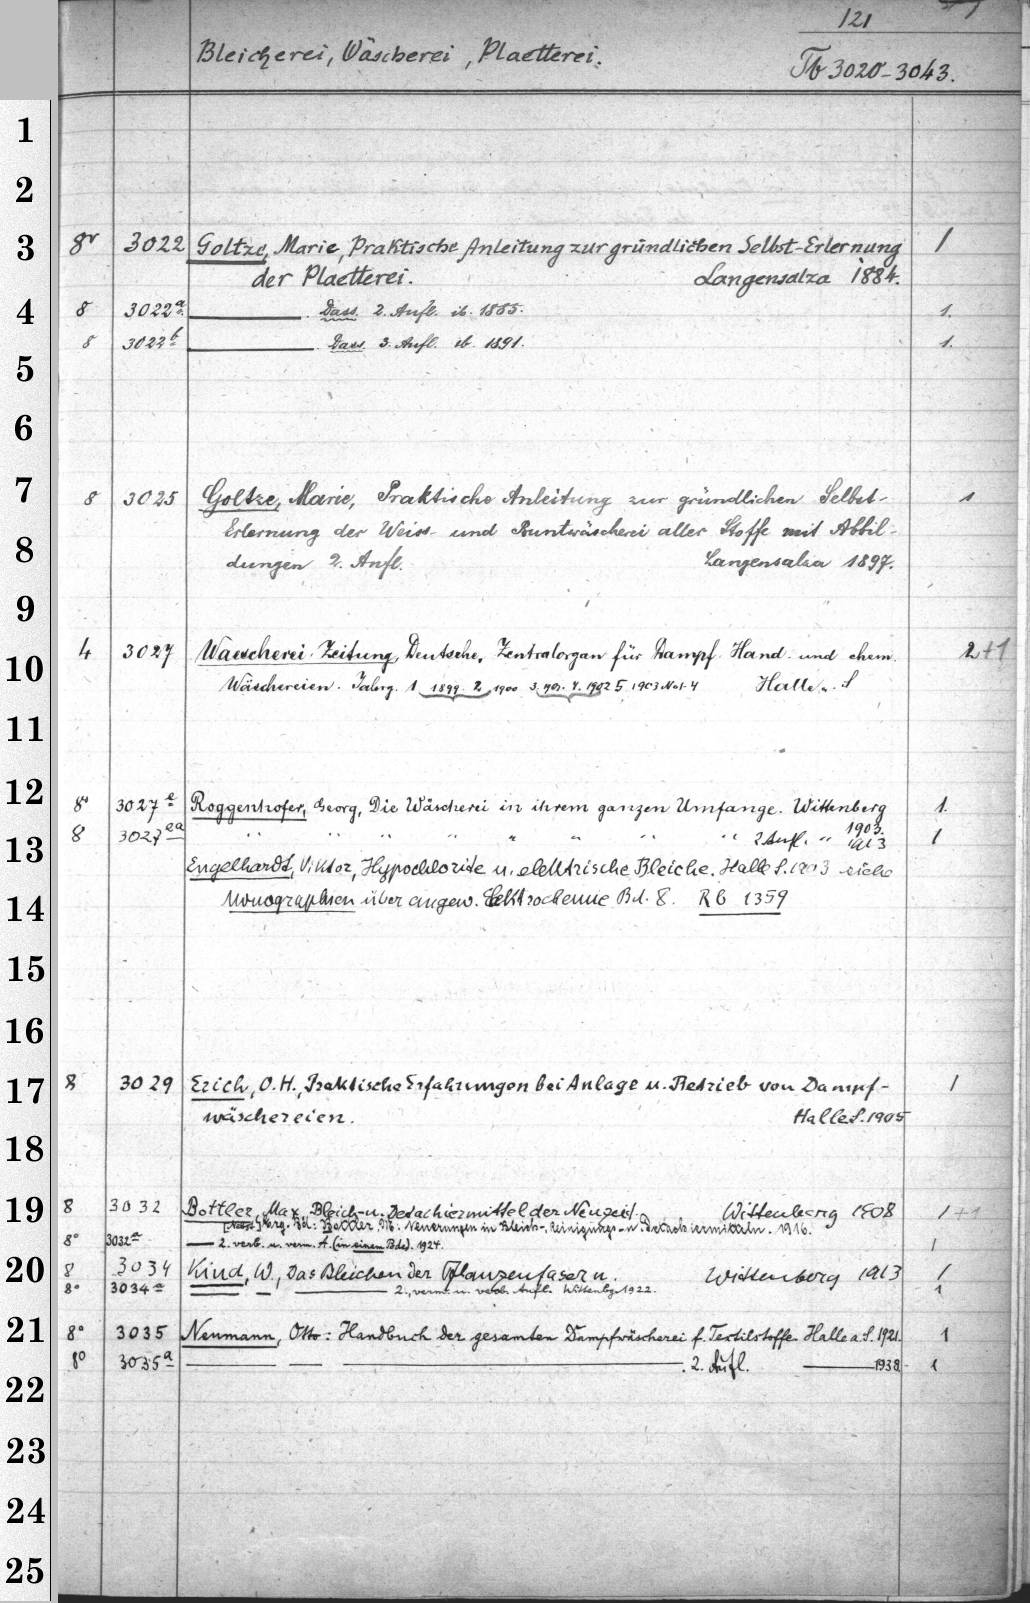 121
Bleicherei, Wäscherei, Plaetterei.
Tb 3020-3043.
1
2
3 8º 3022 Goltze, Marie, Praktische Anleitung zur gründlichen Selbst-Erlernung 1
der Plaetterei. Langensalza 1884.
4 8 3022a Dass. 2. Aufl. ib. 1885. 1.
8 3022b Dass. 3. Aufl. ib. 1891. 1.
5
6
7 8 3025 Goltze, Marie, Praktische Anleitung zur gründlichen Selbst- 1
Erlernung der Weiss- und Buntwäscherei aller Stoffe mit Abbil-
8 dungen 2. Aufl. Langensalza 1897.
9
10 4 3027 Waescherei-Zeitung, Deutsche, Zentralorgan für Dampf- Hand- und chem. 2+1
Wäschereien. Jahrg. 1 1899. 2 1900 3. 1901. 4. 1902 5, 1903 No 1-4 Halle a. S
11
12 8º 3027e Roggenhofer, Georg, Die Wäscherei in ihrem ganzen Umfange. Wittenberg 1.
1903.
13 8 3027ea " " " " " " " " 2 Aufl. " 1913 1
Engelhardt, Viktor, Hypochlorite u. elektrische Bleiche. Halle S. 1903 siehe
14 Monographien über angew. Elektrochemie Bd. 8. Rb 1359
15
16
17 8 3029 Erich, O.H., Praktische Erfahrungen bei Anlage u. Betrieb von Dampf- 1
wäschereien. Halle S. 1905
18
19 8 3032 Bottler, Max, Bleich- u. Detachiermittel der Neuzeit. Wittenberg 1908 1+1
Erg. Bd.: Bottler, M.: Neuerungen in Bleich-, Reinigungs- u. Detachiermitteln. 1916.
8º 3032a — 2. verb. u. verm. A. (in einem Bde). 1924. 1
20 8 3034 Kind, W., Das Bleichen der Pflanzenfasern. Wittenberg 1913 1
8º 3034a 2., verm. u. verb. Aufl. Wittenbg. 1922. 1
21 8º 3035 Neumann, Otto: Handbuch der gesamten Dampfwäscherei f. Textilstoffe. Halle a. S. 1921. 1
8º 3035a 2. Aufl. 1938. 1
22
23
24
25